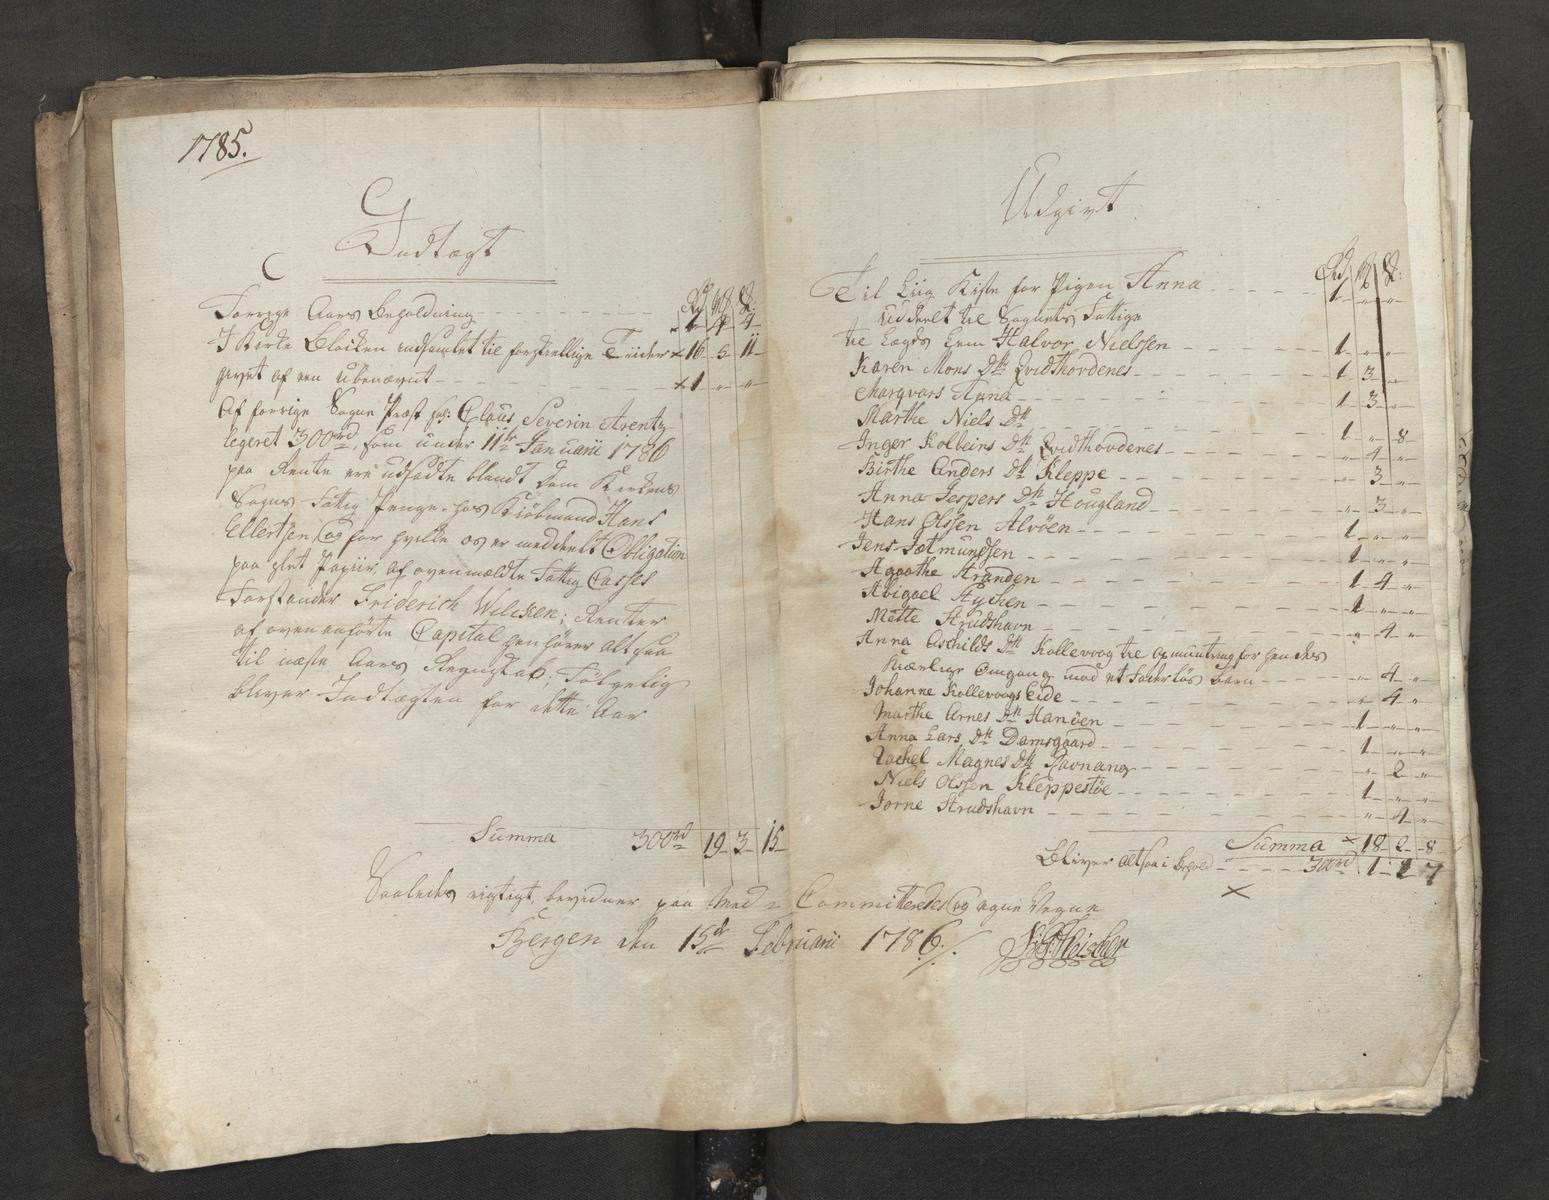 1785.
Indtægt
Rd mk s:
Forrige Aars Beholdning - - - - - - 1 4 4
I Kirke Blocken indsamlet til forskiellige Tiider x 16 5 11
givet af een ubenævnt - - - - - - x 1 " "
Af forrige Sogne Præst hr: Claus Severin Arentz
legeret 300rd, som under 11te Januarii 1786
paa Rente ere udsadte blandt dem Kirkens
Sogns Fattig Penge, hos Kiøbmand Hans
Ellertsen, og for hvilke os er meddeelt Obligation
paa slet Papiir af ovenmældte Fattig Casses
Forstander Friderich Wilcken; Renter
af ovenanførte Capital henhører altsaa
til næste Aars Regnskab; Følgelig
bliver Indtægten for dette Aar
Summa 300rd 19 3 15
Udgivt
Rd mk s:
Til Liig Kiste for Pigen Anna - - - - 1 " "
Uddeelt til Sognets Fattige
til Lægds Lem Halvor Nielssen - - - - 1 " "
Karen Mons Dtr Qvidthovdenes - - - - 1 3 "
Marqvars Anna - - - - 1 3 "
Marthe Niels Dtr - - - - 1 " 8
Inger Kolbeins Dtr Qvidthovdenes - - - - " 4 "
Birthe Anders Dtr Kleppe - - - - " 3 "
Anna Jespers Dtr Hougland - - - - " 3 "
Hans Olssen Alvöen - - - - 1 " "
Jens Jetmundsen - - - - 1 " "
Agaathe Stranden - - - - 1 4 "
Abigael Hychen - - - - 1 " "
Mette Strudshavn - - - - " 4 "
Anna Aschilds Dtr Kollevoog til opmuntring for hendes
kierlige Omgang med et Faderløs barn - - - - " 4 "
Johanne Kollevoogs Eide - - - - " 4 "
Marthe Arnes Dtr Hanöen - - - - 1 " "
Anna Lars Dtr Damsgaard - - - - 1 " "
Rachel Magnes Dtr Ravnang - - - - " 2 "
Niels Olssen Kleppestöe - - - - 1 " "
Jorne Strudshavn - - - - " 4 "
Summa x 18 2 8
Bliver altsaa i Behold - - - - 300rd 1 1 7
x
Saaledes rigtigt, bevidner paa Med Committeredes og egne Vegne
Bergen den 15de Februarii 1786./.
Fleischer